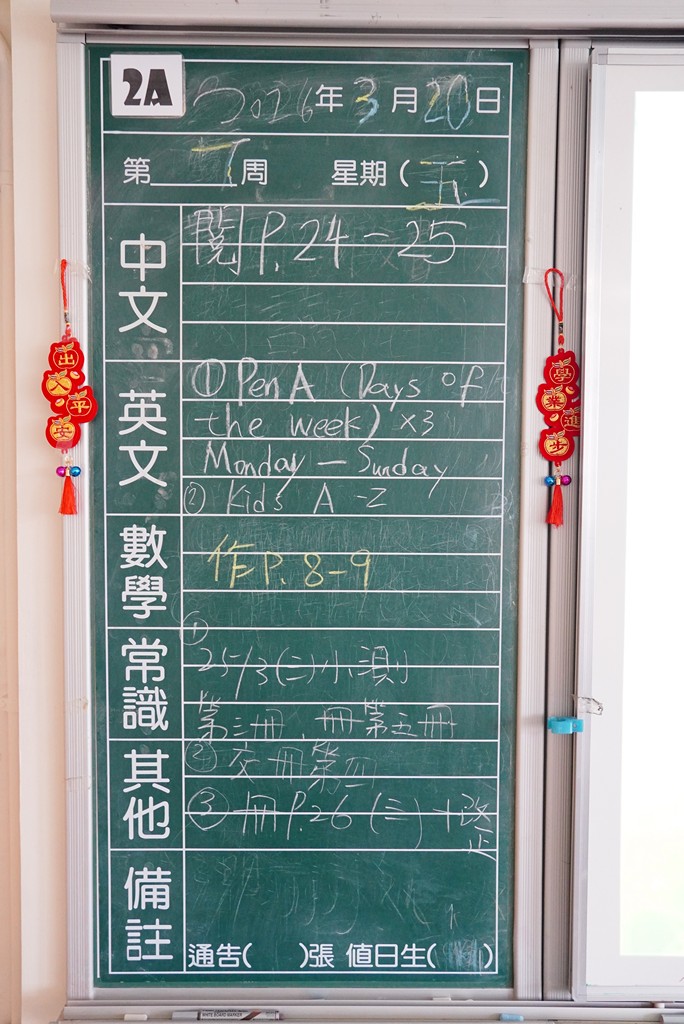 2A
2026年3月20日
第 周 星期(五)
中文
閱P.24-25
英文
① Pen A (Days of
the week) ×3
Monday - Sunday
② Kids A-Z
數學
作P.8-9
常識
①
25/3(三)小測
第三冊、冊第五冊
其他
② 交冊第四
③ 冊P.26(三)+改正
備註
通告( )張 值日生( )
出入平安
學業進步
WHITE BOARD MARKER